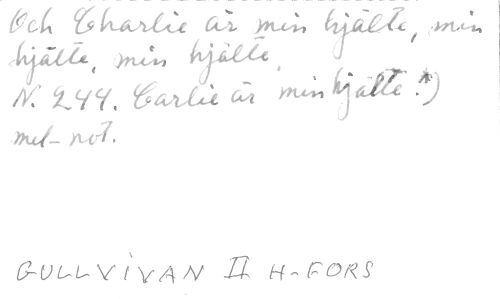 Och Charlie är min hjälte, min
hjälte, min hjälte,
N. 244. Carlie är min hjälte.*)
mel-not.
GULLVIVAN II H-FORS